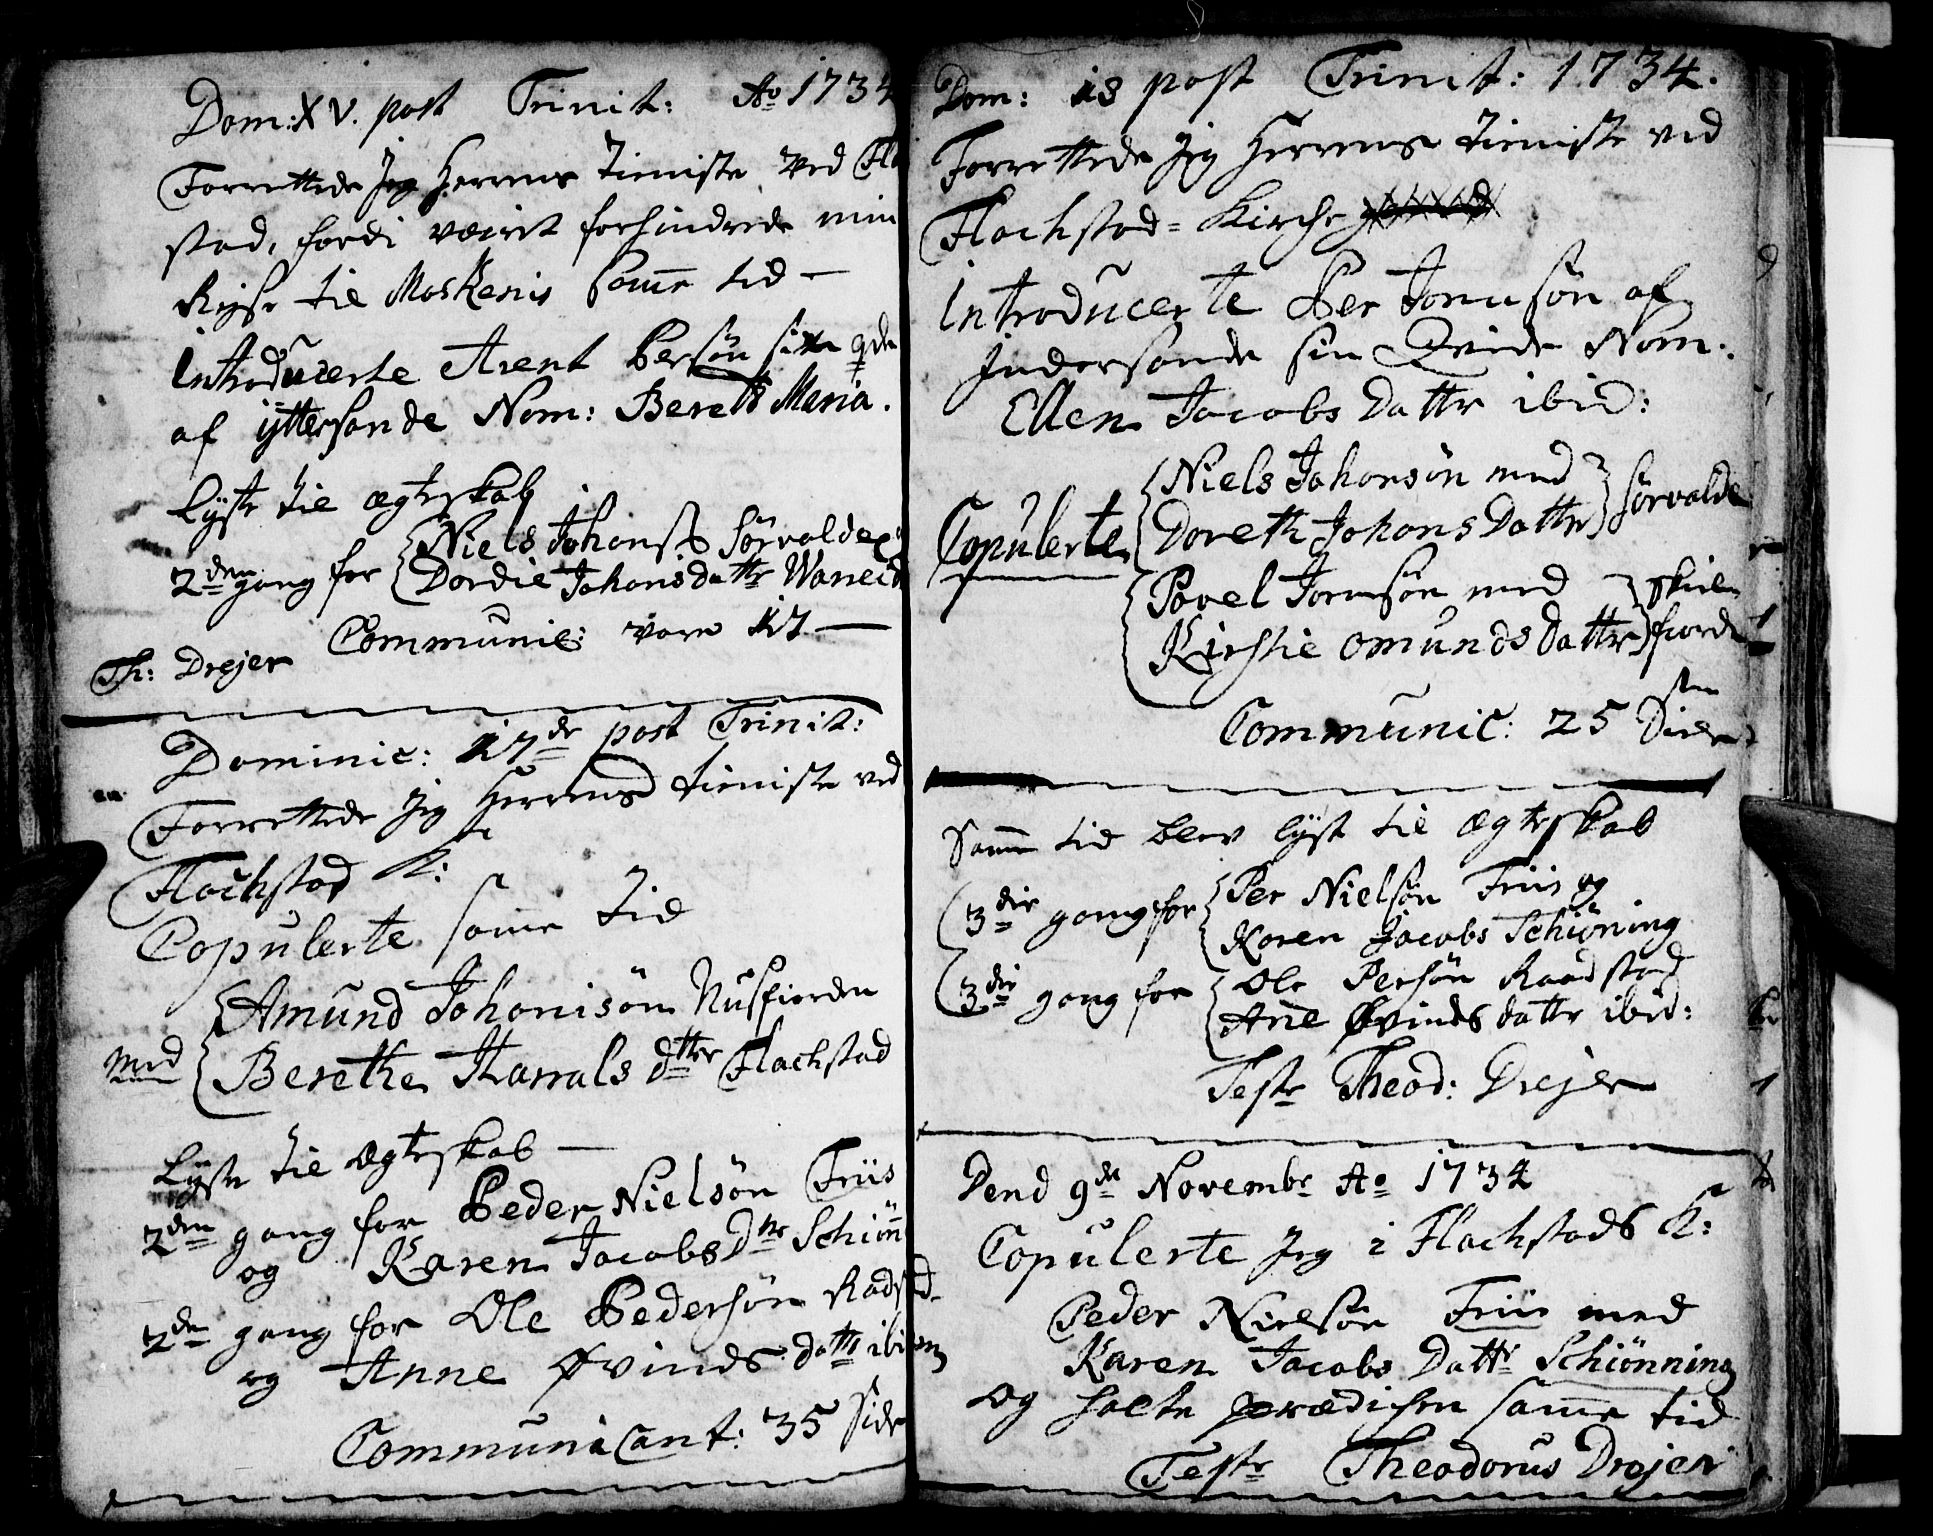 Dom: XV. post Trinit: Ao 1734
Forrettede Jeg Herrens Tieniste ved Fla
stad, fordi veiret forhindrede min
Rejse til Moskenis samme tid —
Introducerte Arent Persøn sin qde
af ÿttersande Nom: Bereth Maria.
Lyste til Ægteskab
2den gang for Niels Johans: Sørvalde
Dordie Johans datter
Communic: vare 17 —
Th: Drejer
Dominic: 17de post Trinit:
Forrettede Jeg Herrens tieniste ved
Flachstad K:
Copulerte same tid
Amund Johanisøn Nusfiorden
med
Berethe Harrals dtter Flachstad
Lyste til Ægteskab —
2den gang for Peder Nielsøn Friis
og Karen Jacobs Dtr Schiøn
2den gang for Ole Pedersøn Radst
og Anne Øvinds datter ibidem
Communicant: 35 Sidr
Dom: 18 post Trinit: 1734.
Forrettede Jeg Herrens tieniste ved
Flachstad= Kirche
Introducerte Per Jonusøn af
Indersande sin Qvinde Nom:
Ellen Jacobs Datter ibid:
Copulerte Niels Johansøn med
Doreth Johans Datter Sørvalde
Povel Jonusøn med
Kirstie Omunds Datter
Communic: 25
Samme tid blev lyst til Ægteskab
3die gang for Per Nielsøn Friis og
Karen Jacobs Schiøning
3die gang for Ole Persøn Raadstad
Ane Øvinds datter ibid:
Teste Theod: Drejer
Dend 9de Novembr Ao 1734
Copulerte Jeg i Flachstads K:
Peder Nielsøn Friis med
Karen Jacobs Datter Schiønning
og holte prædichen samme tid
Teste Theodorus Drejer